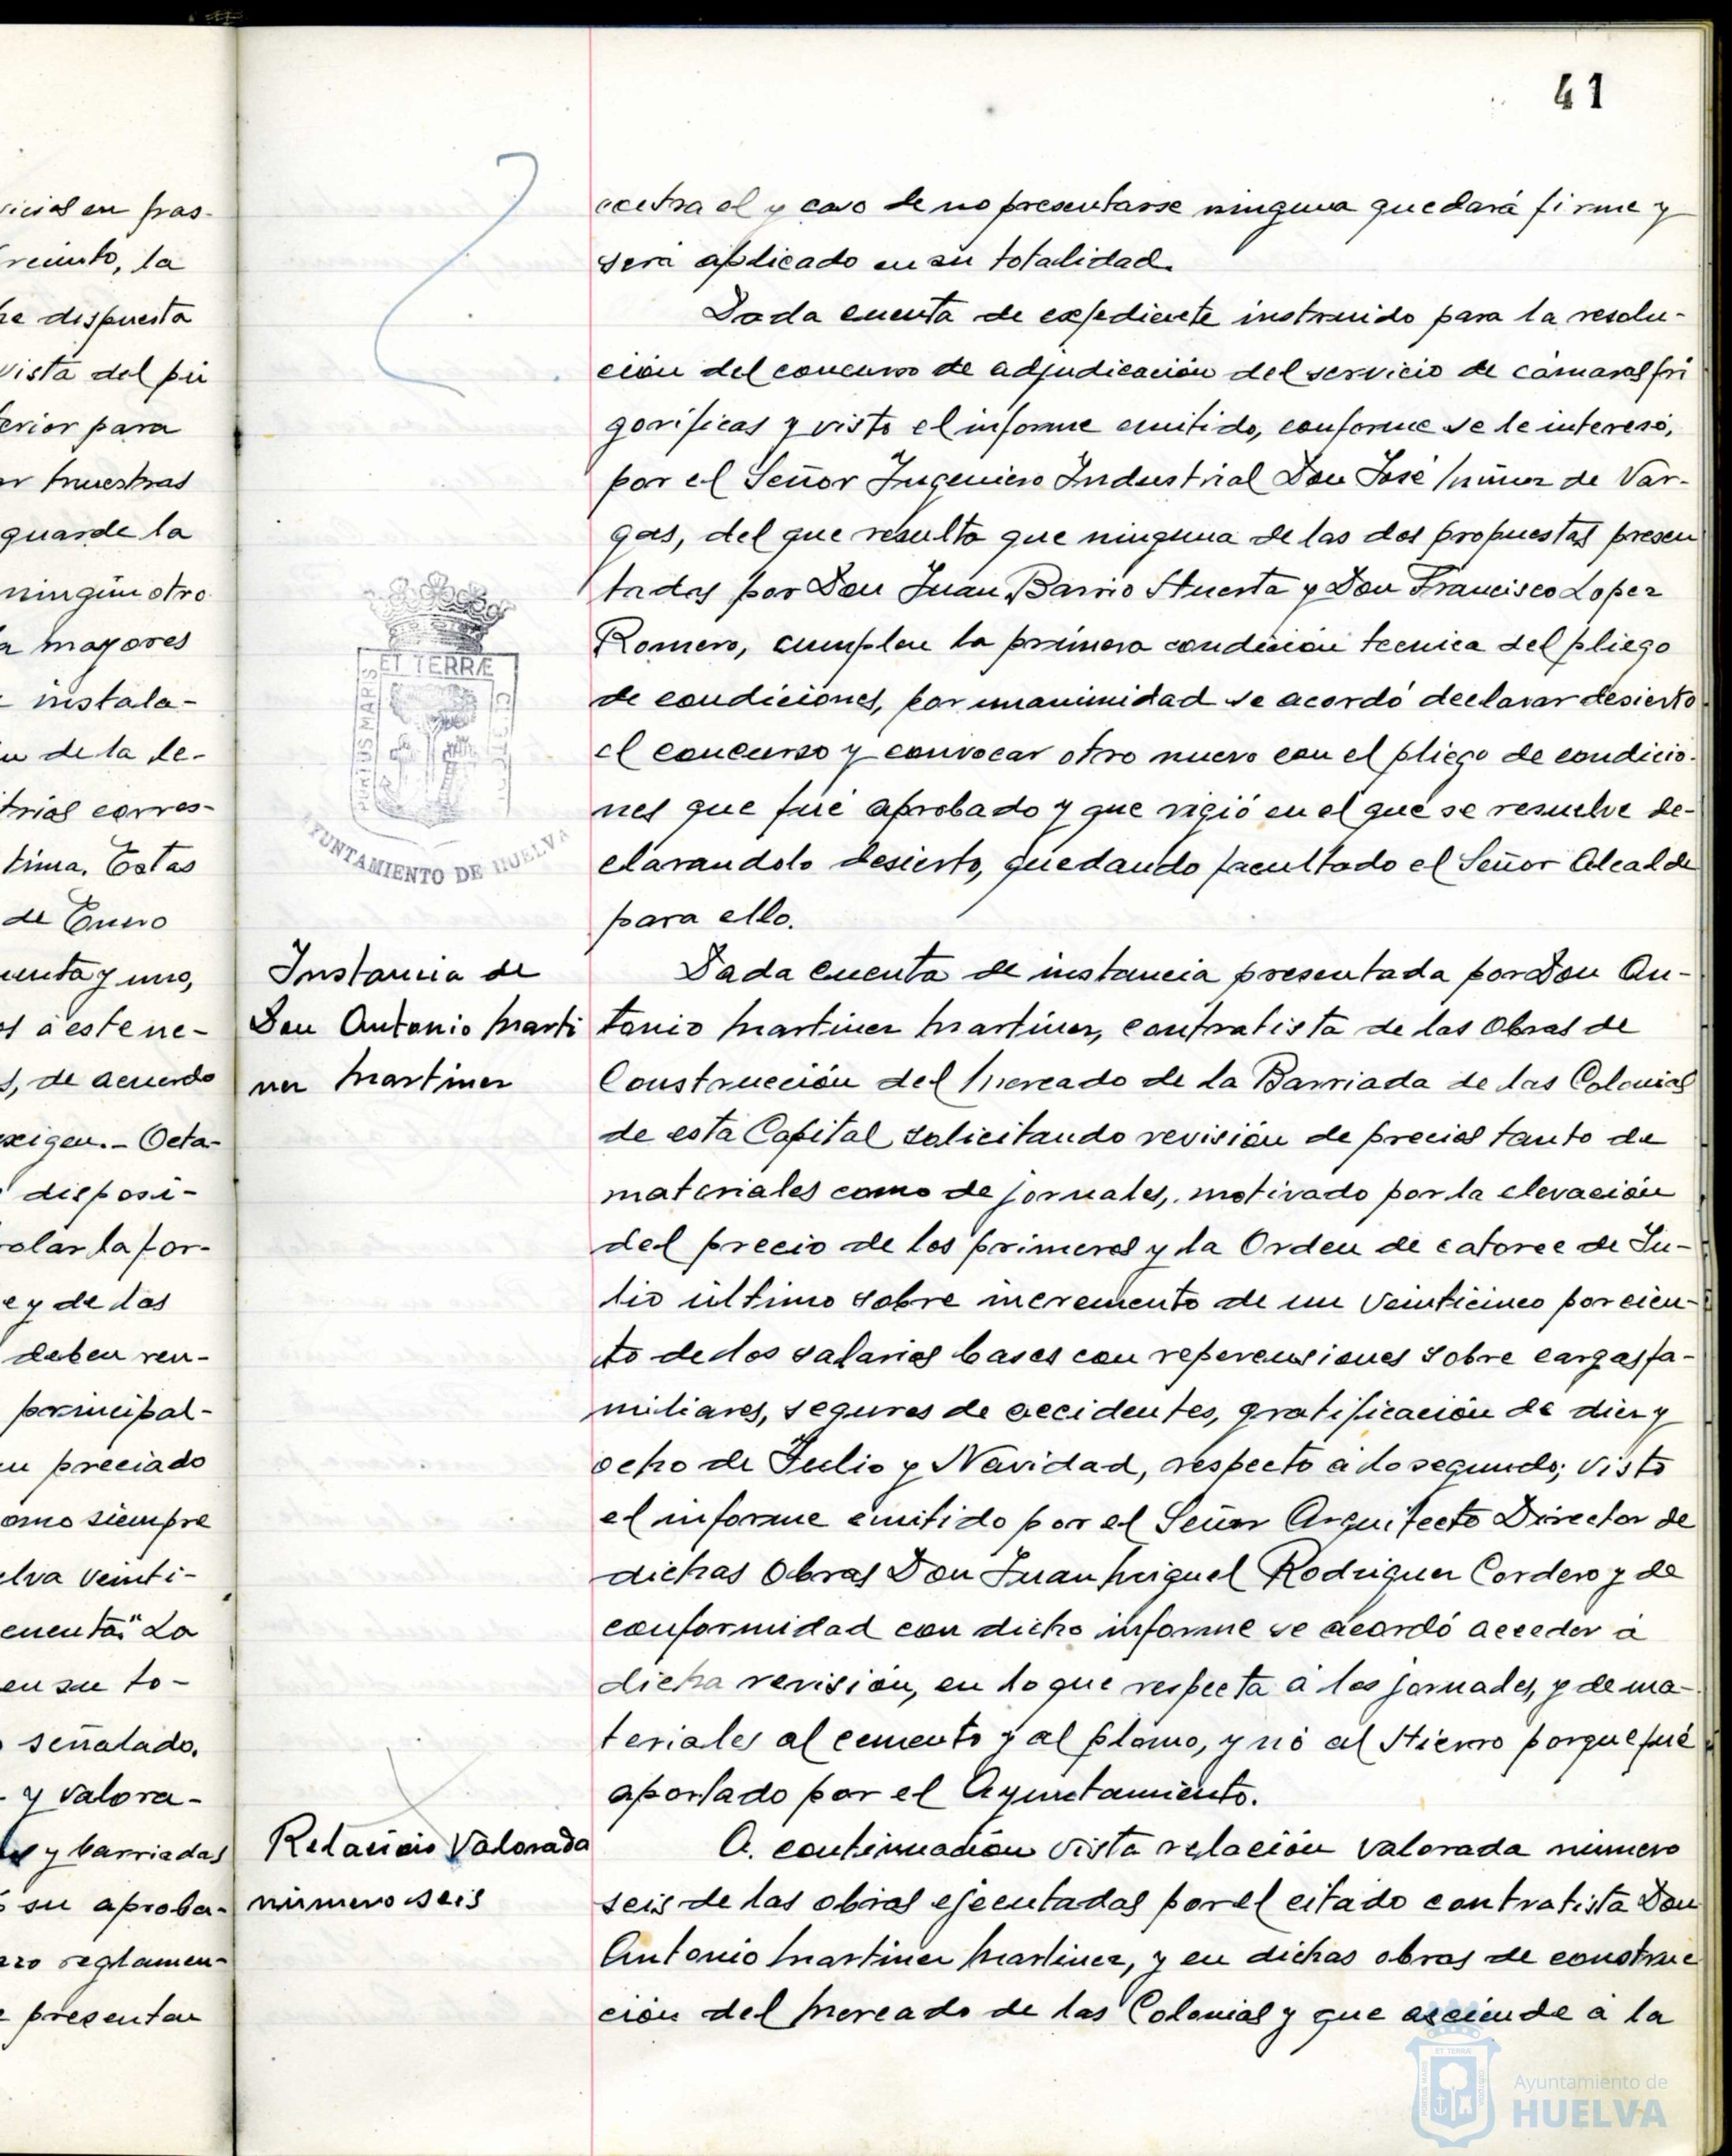 41
vicios en pras-
recinto, la
he dispuesta
vista del pú
terior para
muestras
guarde la
ningún otro
mayores
instala-
de la le-
trias corres-
tima. Estas
de Enero
cuenta y uno,
á este ne-
s, de acuerdo
exigen.- Octa-
disposi-
rolar la for-
e y de los
deben ren-
principal-
preciado
omo siempre
elva veinti-
cuenta." La
en su to-
señalado.
y valora-
y barriadas
su aproba-
azo reglamen-
presentan
ET TERRÆ
PORTUS MARIS
CUSTODIA
AYUNTAMIENTO DE HUELVA
contra el y caso de no presentarse ninguna quedará firme y
será aplicado en su totalidad.
Dada cuenta de expediente instruido para la resolu-
ción del concurso de adjudicación del servicio de cámaras fri
goríficas y visto el informe emitido, conforme se le interesó,
por el Señor Ingeniero Industrial Don José Muñoz de Var-
gas, del que resulta que ninguna de las dos propuestas presen
tadas por Don Juan Barrio Huerta y Don Francisco Lopez
Romero, cumplen la primera condición tecnica del pliego
de condiciones, por unanimidad se acordó declarar desierto
el concurso y convocar otro nuevo con el pliego de condicio-
nes que fué aprobado y que rigió en el que se resuelve de-
clarandolo desierto, quedando facultado el Señor Alcalde
para ello.
Instancia de
Don Antonio Marti
nez Martinez
Dada cuenta de instancia presentada por Don An-
tonio Martinez Martinez, contratista de las Obras de
Construcción del Mercado de la Barriada de las Colonias
de esta Capital solicitando revisión de precios tanto de
materiales como de jornales, motivado por la elevación
del precio de los primeros y la Orden de catorce de Ju-
lio último sobre incremento de un veinticinco por cien-
to de los salarios bases con repercusiones sobre cargas fa-
miliares, seguros de accidentes, gratificación de diez y
ocho de Julio y Navidad, respecto á lo segundo; visto
el informe emitido por el Señor Arquitecto Director de
dichas Obras Don Juan Miguel Rodriguez Cordero y de
conformidad con dicho informe se acordó acceder á
dicha revisión, en lo que respecta á los jornales, y de ma-
teriales al cemento y al plomo, y nó al Hierro porque fué
aportado por el Ayuntamiento.
Relación Valorada
número seis
A continuación vista relación valorada número
seis de las obras ejecutadas por el citado contratista Don
Antonio Martinez Martinez, y en dichas obras de construc
ción del Mercado de las Colonias y que asciende á la
Ayuntamiento de
HUELVA